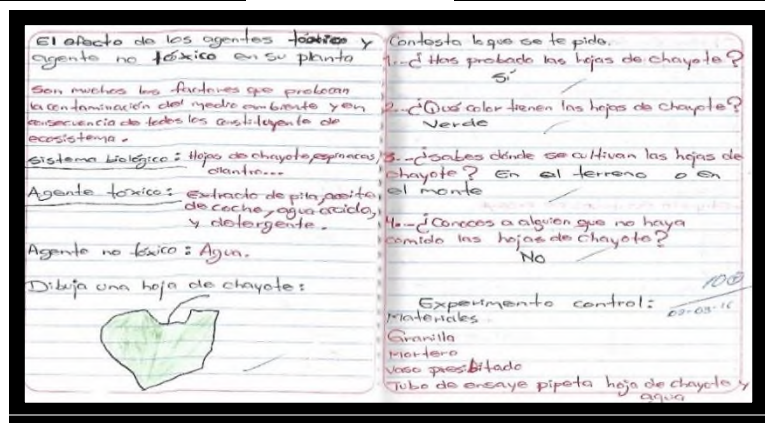 El efecto de los agentes toxico y
agente no tóxico en su planta
Son muchos los factores que probocan
la contaminación del medio ambiente y en
consecuencia de todos los constituyente de
ecosistema.
sistema biológico: Hojas de chayote, espinacas,
cilantro...
Agente toxico: extracto de pila, aceite
de coche, agua acida,
y detergente.
Agente no tóxico: Agua.
Dibuja una hoja de chayote:
Contesta lo que se te pide.
1.-¿Has probado las hojas de chayote?
Sí
2.-¿Qué color tienen las hojas de chayote?
Verde
3.-¿sabes dónde se cultivan las hojas de
chayote? En el terreno o en
el monte
4.-¿Conoces a alguien que no haya
comido las hojas de chayote?
No
10
02-03-16
Experimento control:
Materiales
Granilla
Mortero
vaso presibitado
Tubo de ensaye pipeta hoja de chayote y
agua